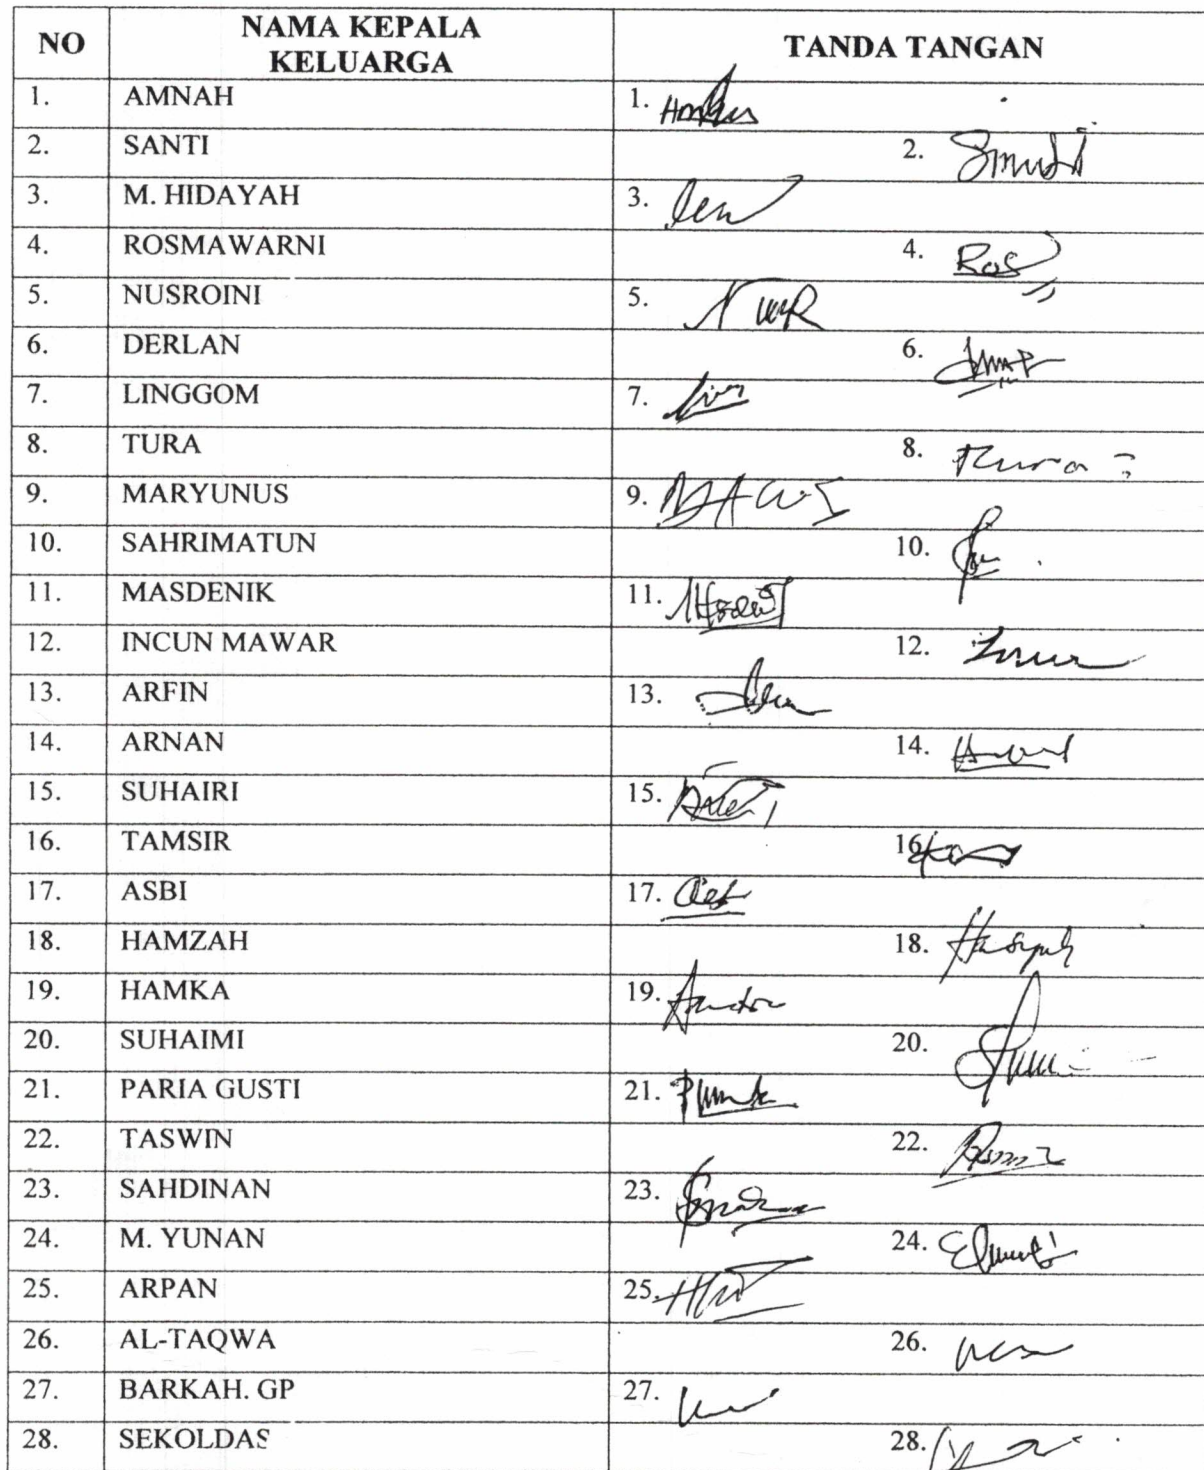 NO NAMA KEPALA KELUARGA TANDA TANGAN
1. AMNAH 1.
2. SANTI 2.
3. M. HIDAYAH 3.
4. ROSMAWARNI 4. Ros
5. NUSROINI 5.
6. DERLAN 6.
7. LINGGOM 7.
8. TURA 8. Tura
9. MARYUNUS 9.
10. SAHRIMATUN 10.
11. MASDENIK 11.
12. INCUN MAWAR 12.
13. ARFIN 13.
14. ARNAN 14.
15. SUHAIRI 15.
16. TAMSIR 16.
17. ASBI 17.
18. HAMZAH 18.
19. HAMKA 19.
20. SUHAIMI 20.
21. PARIA GUSTI 21.
22. TASWIN 22.
23. SAHDINAN 23.
24. M. YUNAN 24.
25. ARPAN 25.
26. AL-TAQWA 26.
27. BARKAH. GP 27.
28. SEKOLDAS 28.